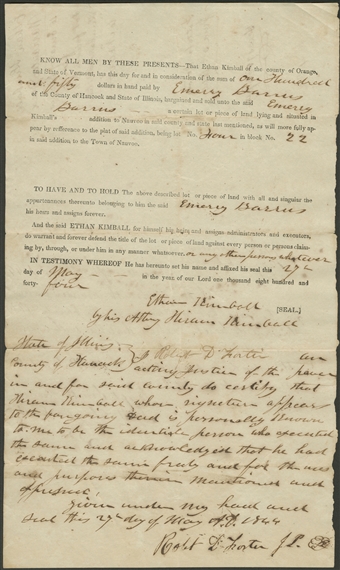 KNOW ALL MEN BY THESE PRESENTS—That Ethan Kimball of the county of Orange,
and State of Vermont, has this day for and in consideration of the sum of one Hundred
and fifty dollars in hand paid by Emery Barrus
of the County of Hancock and State of Illinois, bargained and sold unto the said Emery
Barrus a certain lot or piece of land lying and situated in
Kimball's addition to Nauvoo in said county and state last mentioned, as will more fully ap-
pear by refference to the plat of said addition, being lot No. Four in block No. 22
in said addition to the Town of Nauvoo.
TO HAVE AND TO HOLD The above described lot or piece of land with all and singular the
appurtenances thereunto belonging to him the said Emery Barrus
his heirs and assigns forever.
And the said ETHAN KIMBALL for himself his heirs and assigns administrators and executors,
do warrant and forever defend the title of the lot or piece of land against every person or persons claim-
ing by, through, or under him in any manner whatsoever, or any other persons whatever
IN TESTIMONY WHEREOF He has hereunto set his name and affixed his seal this 27th
day of May in the year of our Lord one thousand eight hundred and
forty- four
Ethan Kimball [SEAL.]
by his Atty Hiram Kimball
State of Illinois
County of Hancock I Robt D Foster an
acting Justice of the peace
in and for said county do certify that
Hiram Kimball whose signature appears
to the foregoing Deed is personally known
to me to be the identicle person who executed
the same and acknowledged that he had
executed the same freely and for the uses
and purposes therein mentioned and
expressed
given under my hand and
seal this 27th day of May A.D. 1844
Robt D Foster J.P.